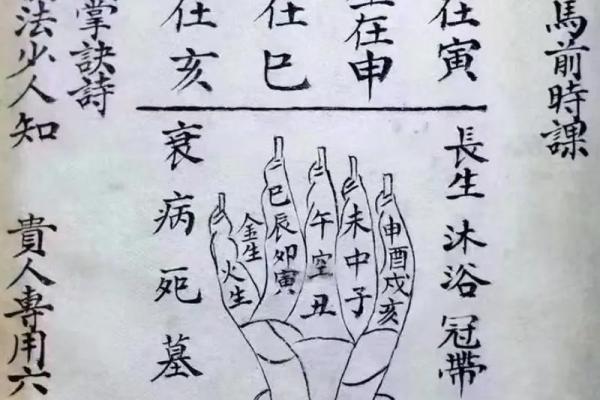 馬前時課
在寅
在申
在巳
在亥
長生 沐浴 冠帶
申酉戌亥
未中子
午空丑
巳辰卯寅
金生
火生
衰病死墓
掌訣詩
法少人知 貴人專用六